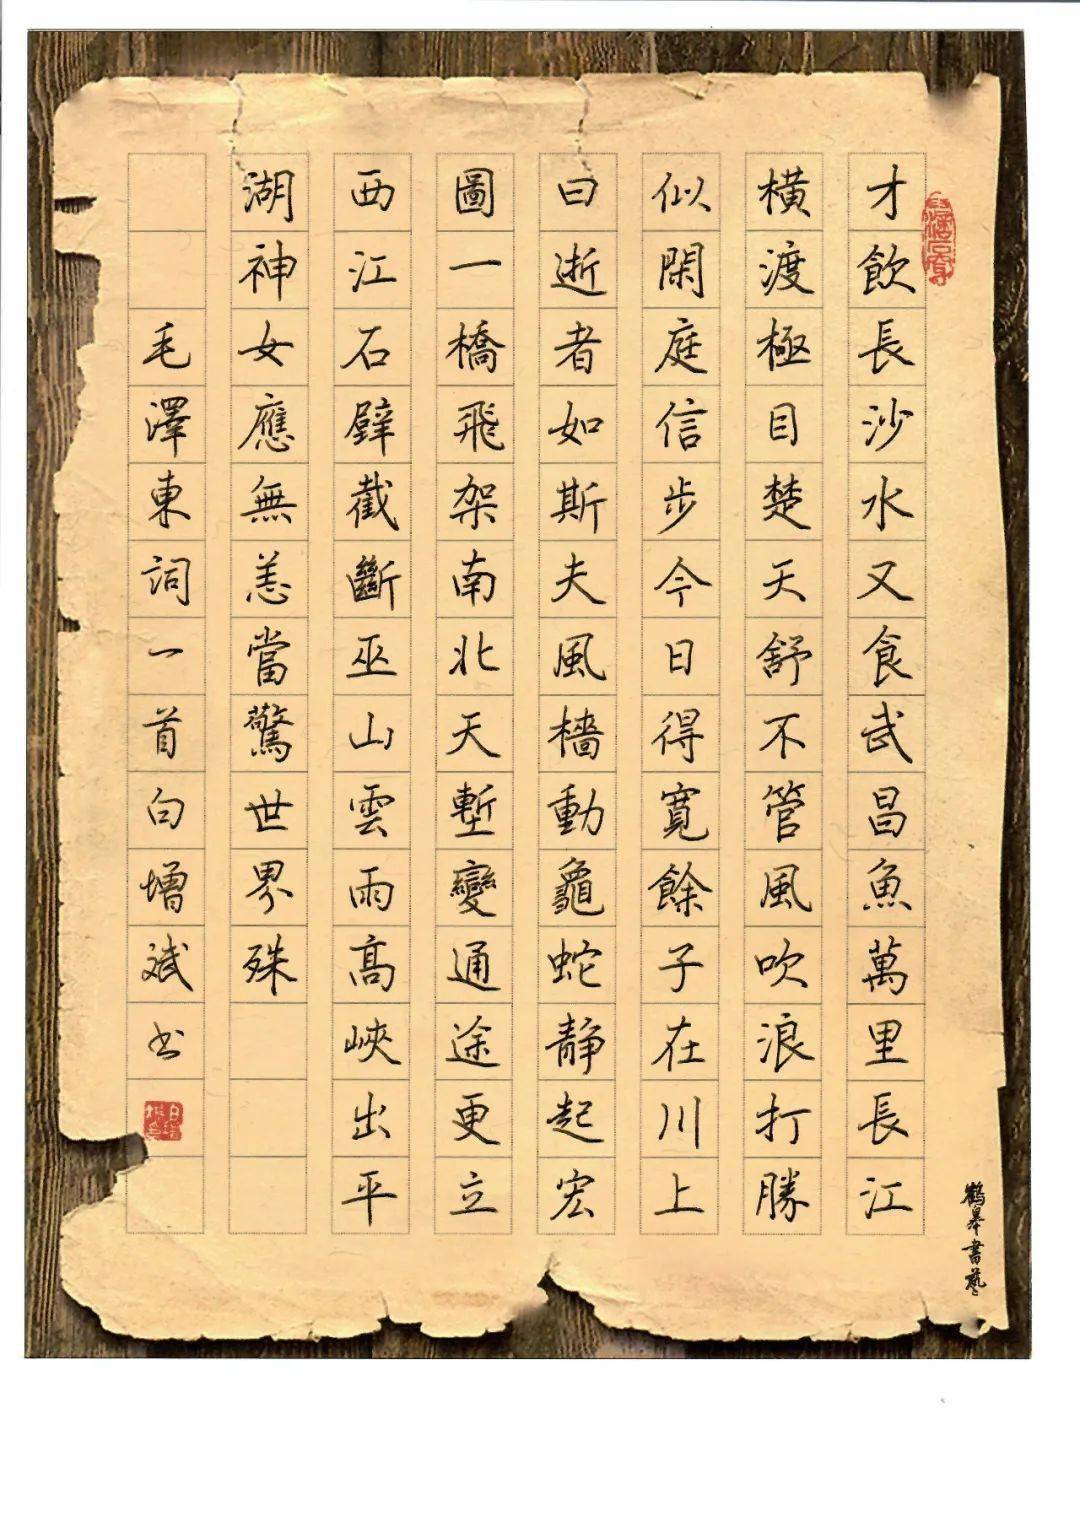 才飲長沙水又食武昌魚萬里長江
横渡極目楚天舒不管風吹浪打勝
似閑庭信步今日得寬餘子在川上
曰逝者如斯夫風檣動龜蛇静起宏
圖一橋飛架南北天塹變通途更立
西江石壁截斷巫山雲雨高峽出平
湖神女應無恙當驚世界殊
毛澤東詞一首白增斌书
鶴皋書藝